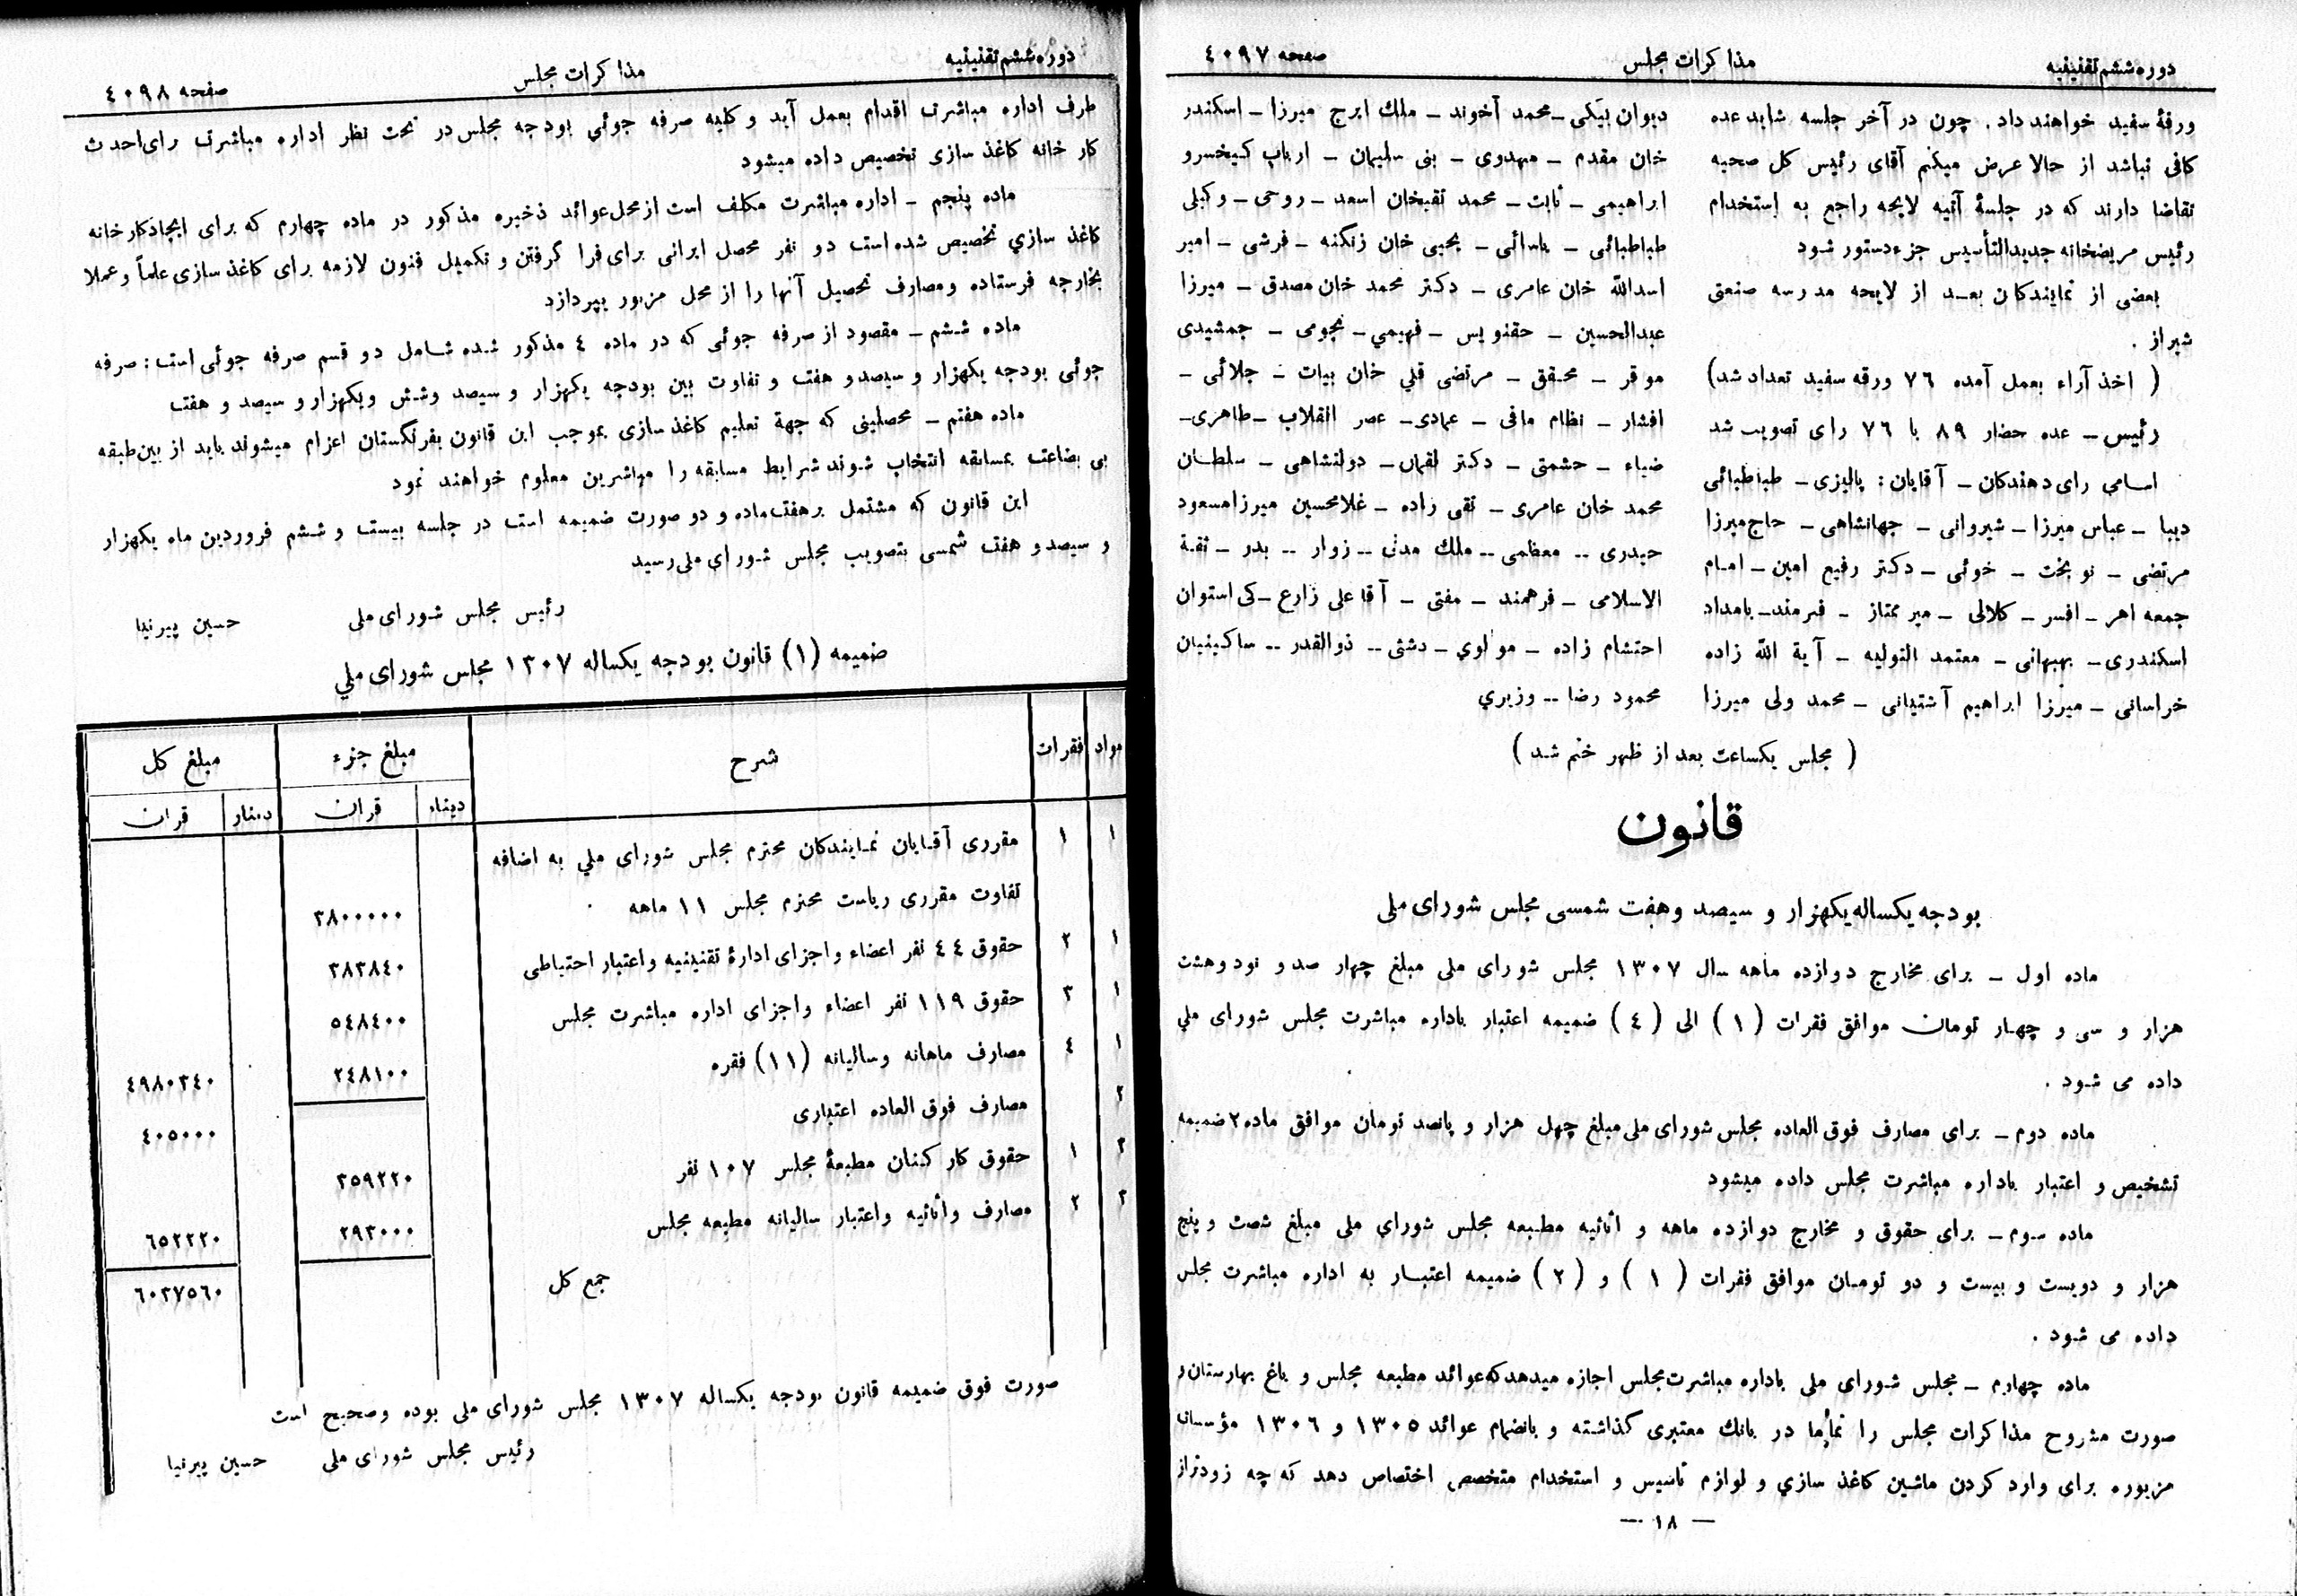 دوره ششم تقنینیه
مذاکرات مجلس
صفحه ٤٠٩٧
ورقهٔ سفید خواهند داد. چون در آخر جلسه شاید عده
کافی نباشد از حالا عرض میکنم آقای رئیس کل صحیه
تقاضا دارند که در جلسهٔ آتیه لایحه راجع به استخدام
رئیس مریضخانه جدیدالتأسیس جزء دستور شود
بعضی از نمایندکان بعد از لایحه مدرسه صنعتی
شیراز .
( اخذ آراء بعمل آمده ٧٦ ورقه سفید تعداد شد)
رئیس ـ عده حضار ٨٩ با ٧٦ رای تصویب شد
اسامی رای دهندکان ـ آقایان : پالیزی ـ طباطبائی
دیبا ـ عباس میرزا ـ شیروانی ـ جهانشاهی ـ حاج میرزا
مرتضی ـ نوبخت ـ خوئی ـ دکتر رفیع امین ـ امام
جمعه اهر ـ افسر ـ کلالی ـ میر ممتاز ـ فرمند ـ بامداد
اسکندری ـ بهبهانی ـ معتمد التولیه ـ آیة الله زاده
خراسانی ـ میرزا ابراهیم آشتیانی ـ محمد ولی میرزا
دیوان بیکی ـ محمد آخوند ـ ملك ایرج میرزا ـ اسکندر
خان مقدم ـ مهدوی ـ بنی سلیمان ـ ارباب کیخسرو
ابراهیمی ـ ثابت ـ محمد تقیخان اسعد ـ روحی ـ وکیلی
طباطبائی ـ یاسائی ـ یحیی خان زنگنه ـ فرشی ـ امیر
اسدالله خان عامری ـ دکتر محمد خان مصدق ـ میرزا
عبدالحسین ـ حقنویس ـ فهیمی ـ نجومی ـ جمشیدی
موقر ـ محقق ـ مرتضی قلي خان بیات ـ جلائی ـ
افشار ـ نظام مافی ـ عمادی ـ عصر انقلاب ـ طاهری ـ
ضیاء ـ حشمتی ـ دکتر لقمان ـ دولتشاهی ـ سلطان
محمد خان عامری ـ تقی زاده ـ غلامحسین میرزا مسعود
حیدری ـ معظمی ـ ملك مدنی ـ زوار ـ بدر ـ ثقة
الاسلامی ـ فرهمند ـ مفتی ـ آقا علی زارع ـ کی استوان
احتشام زاده ـ مولوي ـ دشتی ـ ذوالقدر ـ ساکینیان
محمود رضا ـ وزیري
( مجلس یکساعت بعد از ظهر ختم شد )
قانون
بودجه یکساله یکهزار و سیصد و هفت شمسی مجلس شورای ملی
ماده اول ـ برای مخارج دوازده ماهه سال ١٣٠٧ مجلس شورای ملی مبلغ چهار صد و نود و هشت
هزار و سی و چهار تومان موافق فقرات (١) الی (٤) ضمیمه اعتبار باداره مباشرت مجلس شورای ملي
داده می شود .
ماده دوم ـ برای مصارف فوق العاده مجلس شورای ملی مبلغ چهل هزار و پانصد تومان موافق ماده ٢ ضمیمه
تشخیص و اعتبار باداره مباشرت مجلس داده میشود
ماده سوم ـ برای حقوق و مخارج دوازده ماهه و اثاثیه مطبعه مجلس شوراي ملی مبلغ شصت و پنج
هزار و دویست و بیست و دو تومان موافق فقرات (١) و (٢) ضمیمه اعتبار به اداره مباشرت مجلس
داده می شود .
ماده چهارم ـ مجلس شورای ملی باداره مباشرت مجلس اجازه میدهد که عوائد مطبعه مجلس و باغ بهارستان و
صورت مشروح مذاکرات مجلس را تماما در بانك معتبری گذاشته و بانضمام عوائد ١٣٠٥ و ١٣٠٦ مؤسسات
مزبوره برای وارد کردن ماشین کاغذ سازي و لوازم تاسیس و استخدام متخصص اختصاص دهد که چه زودتر از
— ١٨ —
دوره ششم تقنینیه
مذاکرات مجلس
صفحه ٤٠٩٨
طرف اداره مباشرت اقدام بعمل آید و کلیه صرفه جوئي بودجه مجلس در تحت نظر اداره مباشرت برای احداث
کارخانه کاغذ سازی تخصیص داده میشود
ماده پنجم ـ اداره مباشرت مکلف است از محل عوائد ذخیره مذکور در ماده چهارم که برای ایجاد کارخانه
کاغذ سازي تخصیص شده است دو نفر محصل ایرانی برای فرا گرفتن و تکمیل فنون لازمه برای کاغذ سازی علماً و عملا
بخارجه فرستاده و مصارف تحصیل آنها را از محل مزبور بپردازد
ماده ششم ـ مقصود از صرفه جوئی که در ماده ٤ مذکور شده شامل دو قسم صرفه جوئی است : صرفه
جوئی بودجه یکهزار و سیصد و هفت و تفاوت بین بودجه یکهزار و سیصد و شش و یکهزار و سیصد و هفت
ماده هفتم ـ محصلینی که جهة تعلیم کاغذ سازی بموجب این قانون بفرنگستان اعزام میشوند باید از بین طبقه
بی بضاعت بمسابقه انتخاب شوند شرایط مسابقه را مباشرین معلوم خواهند نمود
این قانون که مشتمل بر هفت ماده و دو صورت ضمیمه است در جلسه بیست و ششم فروردین ماه یکهزار
و سیصد و هفت شمسی بتصویب مجلس شورای ملی رسید
رئیس مجلس شورای ملی حسین پیرنیا
ضمیمه (١) قانون بودجه یکساله ١٣٠٧ مجلس شورای ملي
مواد فقرات شرح مبلغ جزء مبلغ کل
دینار قران دینار قران
١ ١ مقرری آقایان نمایندکان محترم مجلس شورای ملي به اضافه
تفاوت مقرری ریاست محترم مجلس ١١ ماهه ٣٨٠٠٠٠٠
١ ٢ حقوق ٤٤ نفر اعضاء و اجزای ادارهٔ تقنینیه و اعتبار احتیاطی ٣٨٣٨٤٠
١ ٣ حقوق ١١٩ نفر اعضاء و اجزای اداره مباشرت مجلس ٥٤٨٤٠٠
١ ٤ مصارف ماهانه و سالیانه (١١) فقره ٢٤٨١٠٠ ٤٩٨٠٣٤٠
٢ مصارف فوق العاده اعتباری ٤٠٥٠٠٠
٣ ١ حقوق کارکنان مطبعهٔ مجلس ١٠٧ نفر ٣٥٩٢٢٠
٣ ٢ مصارف و اثاثیه و اعتبار سالیانه مطبعه مجلس ٢٩٣٠٠٠ ٦٥٢٢٢٠
جمع کل ٦٠٣٧٥٦٠
صورت فوق ضمیمه قانون بودجه یکساله ١٣٠٧ مجلس شورای ملی بوده و صحیح است
رئیس مجلس شورای ملی حسین پیرنیا